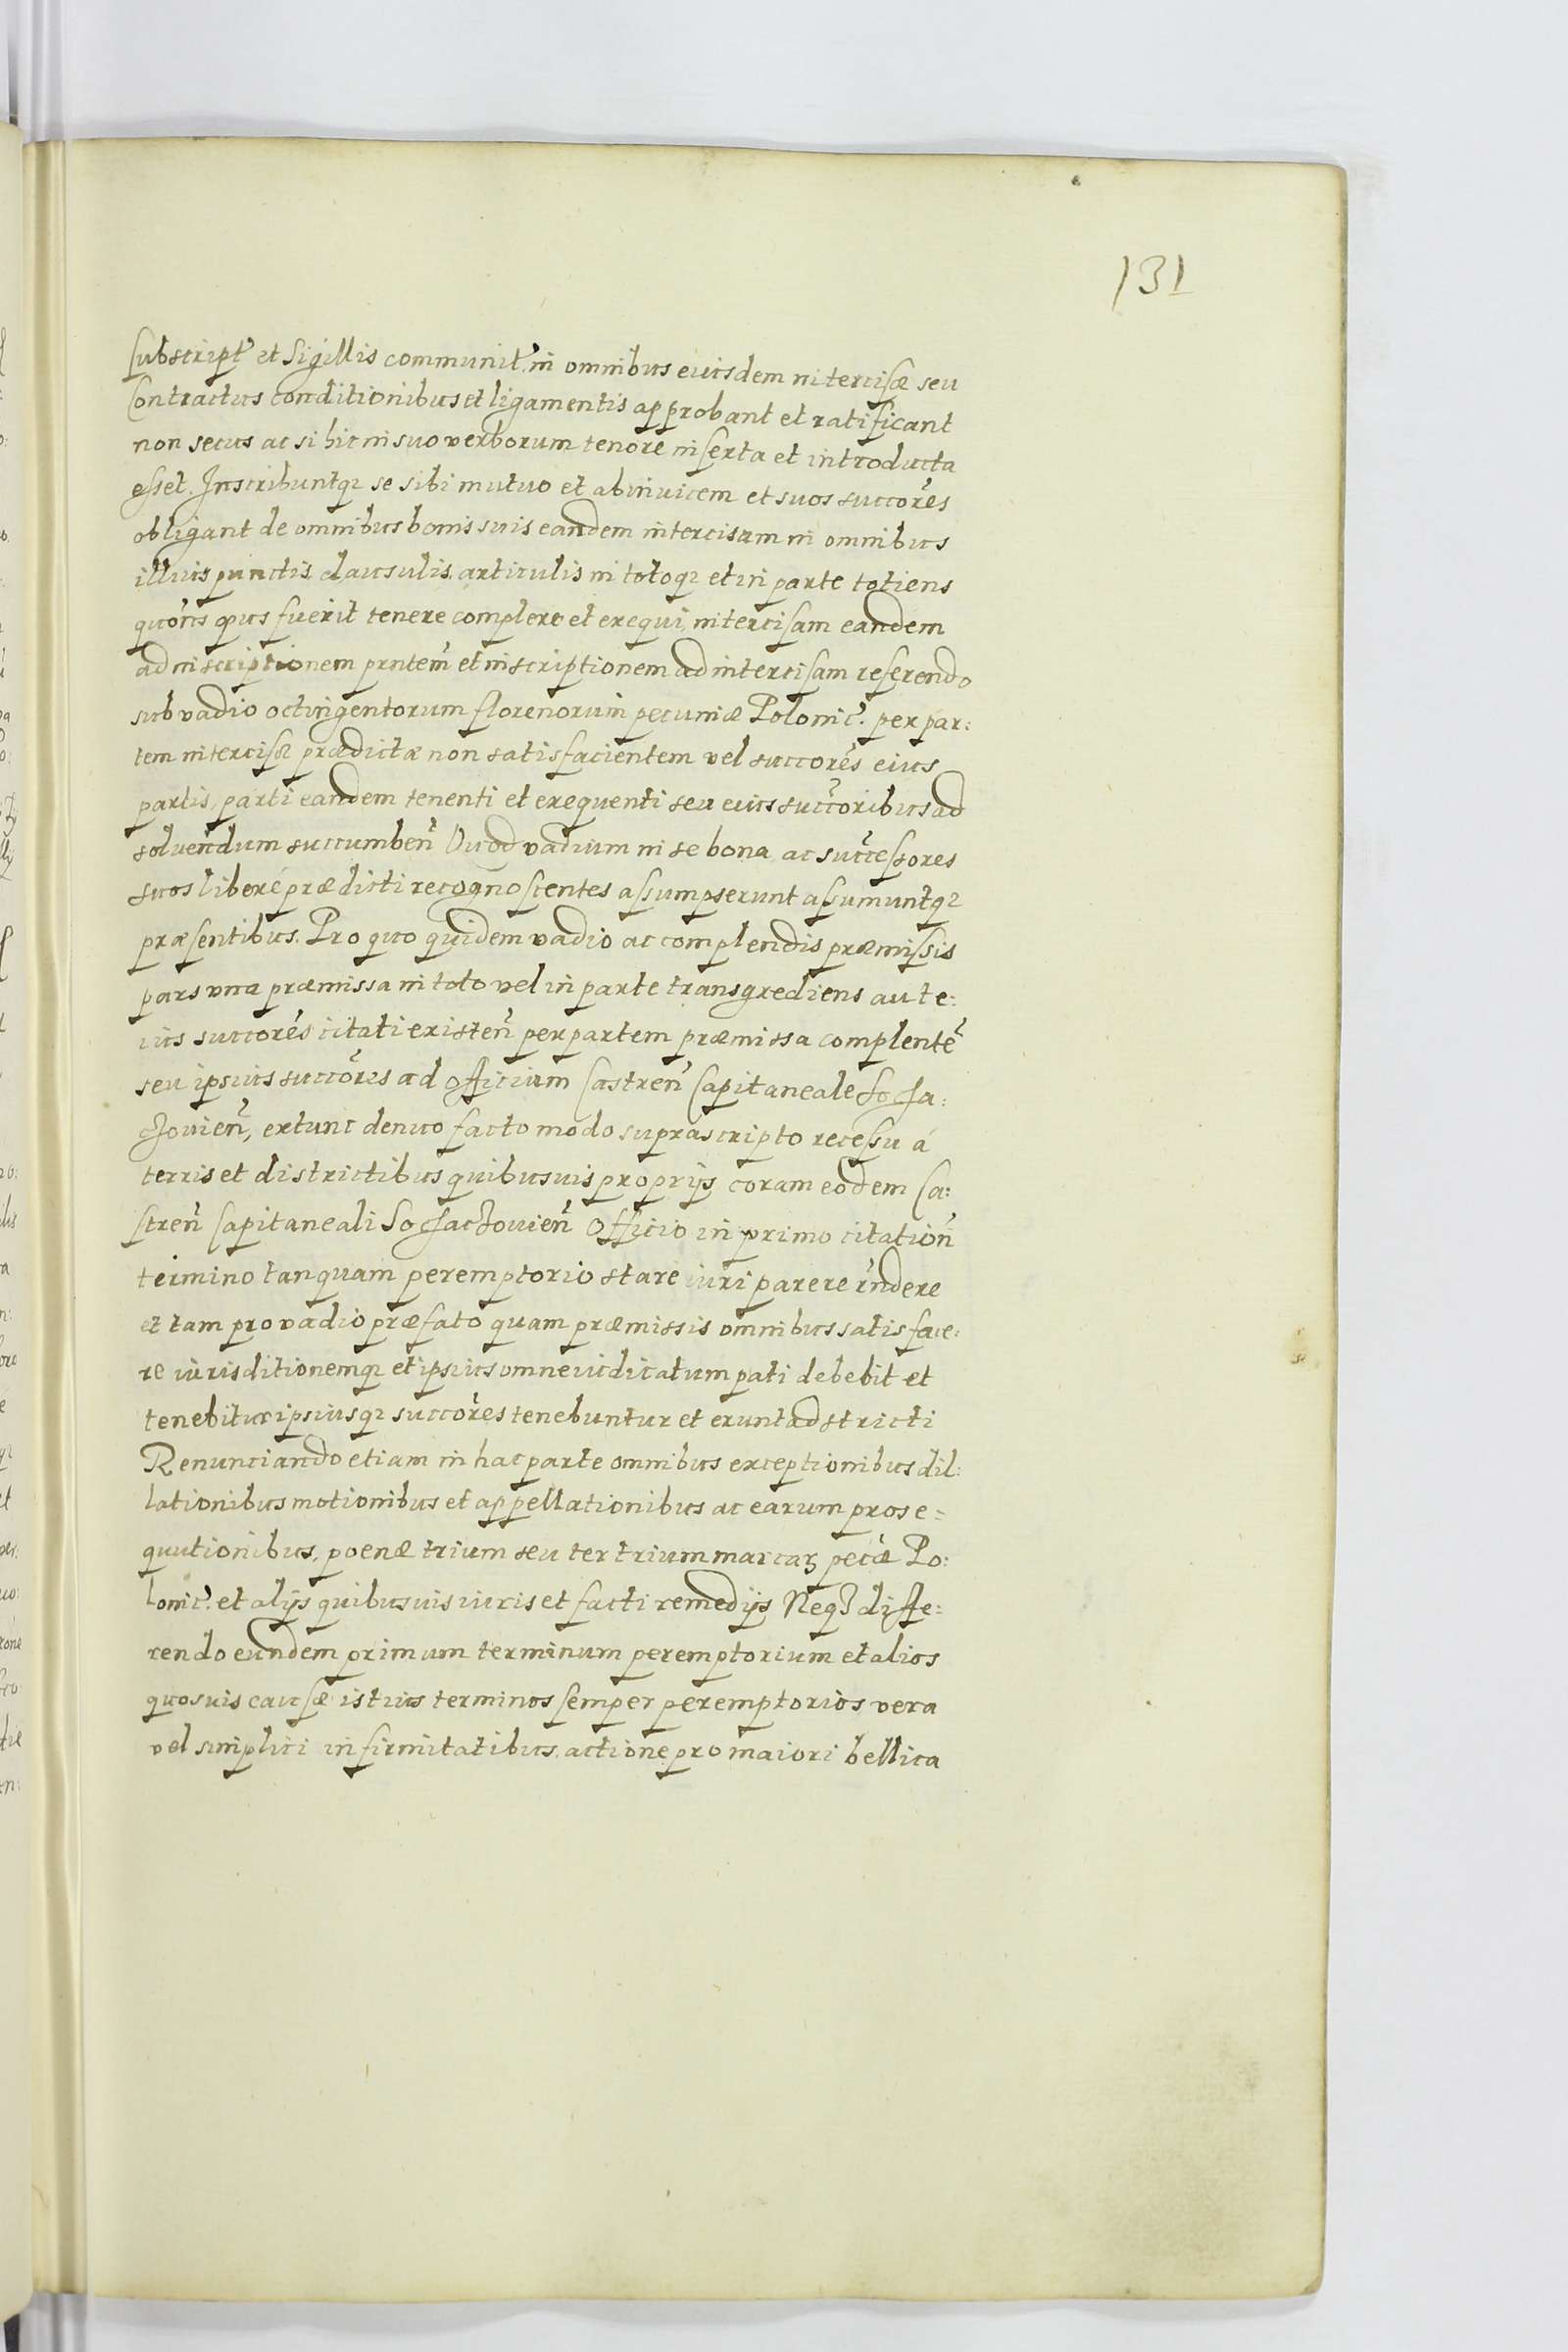 131
Subscript̃ et Sigillis communit̃. in omnibus eiusdem intercisæ seu
Contractus conditionibus et ligamentis approbant et ratificant
non secus ac si hic in suo verborum tenore inserta et introducta
esset. Inscribuntq₃ se sibi mutuo et abinuicem et suos succores̃
obligant de omnibus bonis suis eandem intercisam in omnibus
illius punctis clausulis articulis in totoq₃ et in parte totiens
quõns opus fuerit tenere complere et exequi, intercisam eandem
ad inscriptionem pñtem et inscriptionem ad intercisam referendo
sub vadio octingentorum florenorum pecuniæ Polonic̃. per par:
tem intercisæ prædictæ non satisfacientem vel succorẽs eius
partis, parti eandem tenenti et exequenti seu eius succ̃oribus ad
soluendum succumbeñ Quod vadium in se bona ac successores
suos liberé prædicti recognoscentes assumpserunt assumuntq₃
præsentibus. Pro quo quidem vadio ac complendis præmissis
pars vna præmissa in toto vel in parte transgrediens aut e:
ius succorẽs citati existeñ per partem præmissa complentẽ
seu ipsius succõres ad officium Castreñ Capitaneale Socha:
czouieñ, extunc denuo facto modo suprascripto recessu á
terris et districtibus quibusuis proprijs coram eodem Ca:
streñ Capitaneali Sochaczouieñ Officio in primo citatioñ
termino tanquam peremptorio stare iuri parere r̃ndere
et tam pro vadio præfato quam præmissis omnibus satisface:
re iurisditionemq₃ et ipsius omne iudicatum pati debebit et
tenebitur ipsiusq₃ succorẽs tenebuntur et erunt adstricti
Renunciando etiam in hac parte omnibus exceptionibus dil:
lationibus motionibus et appellationibus ac earum prose=
quutionibus, poenæ trium seu ter trium marcaꝝ pec̃æ Po:
lonic̃. et alijs quibusuis iuris et facti remedijs Neq₃ diffe:
rendo eundem primum terminum peremptorium et alios
quosuis causæ istius terminos semper peremptorios vera
vel simplici infirmitatibus, actione pro maiori bellica